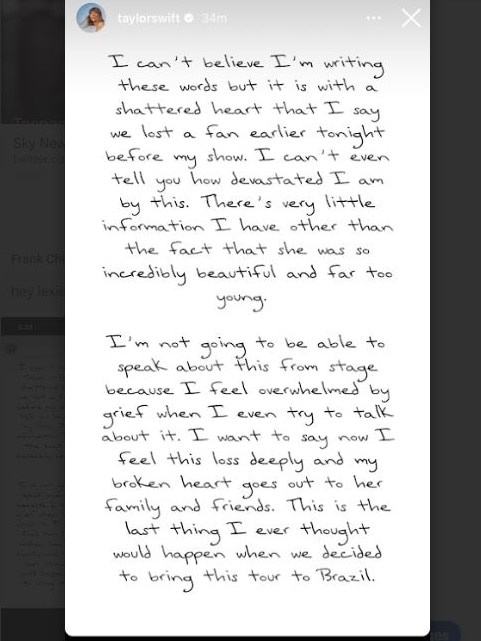 taylorswift 34m
I can't believe I'm writing
these words but it is with a
shattered heart that I say
we lost a fan earlier tonight
before my show. I can't even
tell you how devastated I am
by this. There's very little
information I have other than
the fact that she was so
incredibly beautiful and far too
young.
I'm not going to be able to
speak about this from stage
because I feel overwhelmed by
grief when I even try to talk
about it. I want to say now I
feel this loss deeply and my
broken heart goes out to her
family and friends. This is the
last thing I ever thought
would happen when we decided
to bring this tour to Brazil.
Sky New
Frank Ch
hey